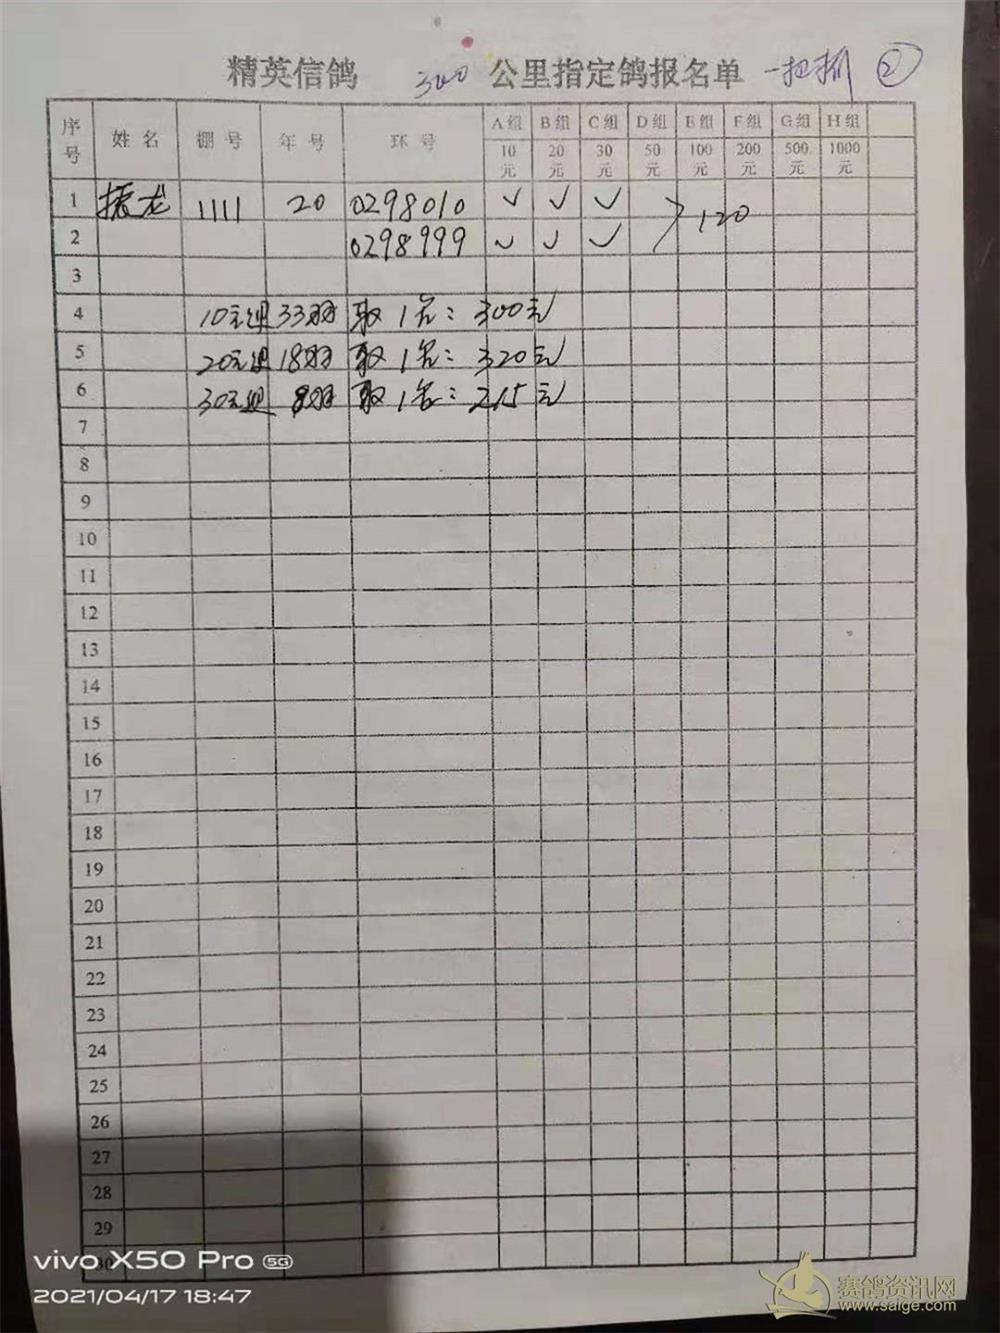 精英信鸽 300 公里指定鸽报名单 一把抓 ②
序号 姓名 棚号 年号 环号 A组 B组 C组 D组 E组 F组 G组 H组
10元 20元 30元 50元 100元 200元 500元 1000元
1 振龙 1111 20 0298010 ✓ ✓ ✓ 120
2 0298999 ✓ ✓ ✓
3
4 10元组 33羽 取1名：300元
5 20元组 18羽 取1名：320元
6 30元组 8羽 取1名：215元
7
8
9
10
11
12
13
14
15
16
17
18
19
20
21
22
23
24
25
26
27
28
29
30
vivo X50 Pro 5G
2021/04/17 18:47
赛鸽资讯网
www.saige.com